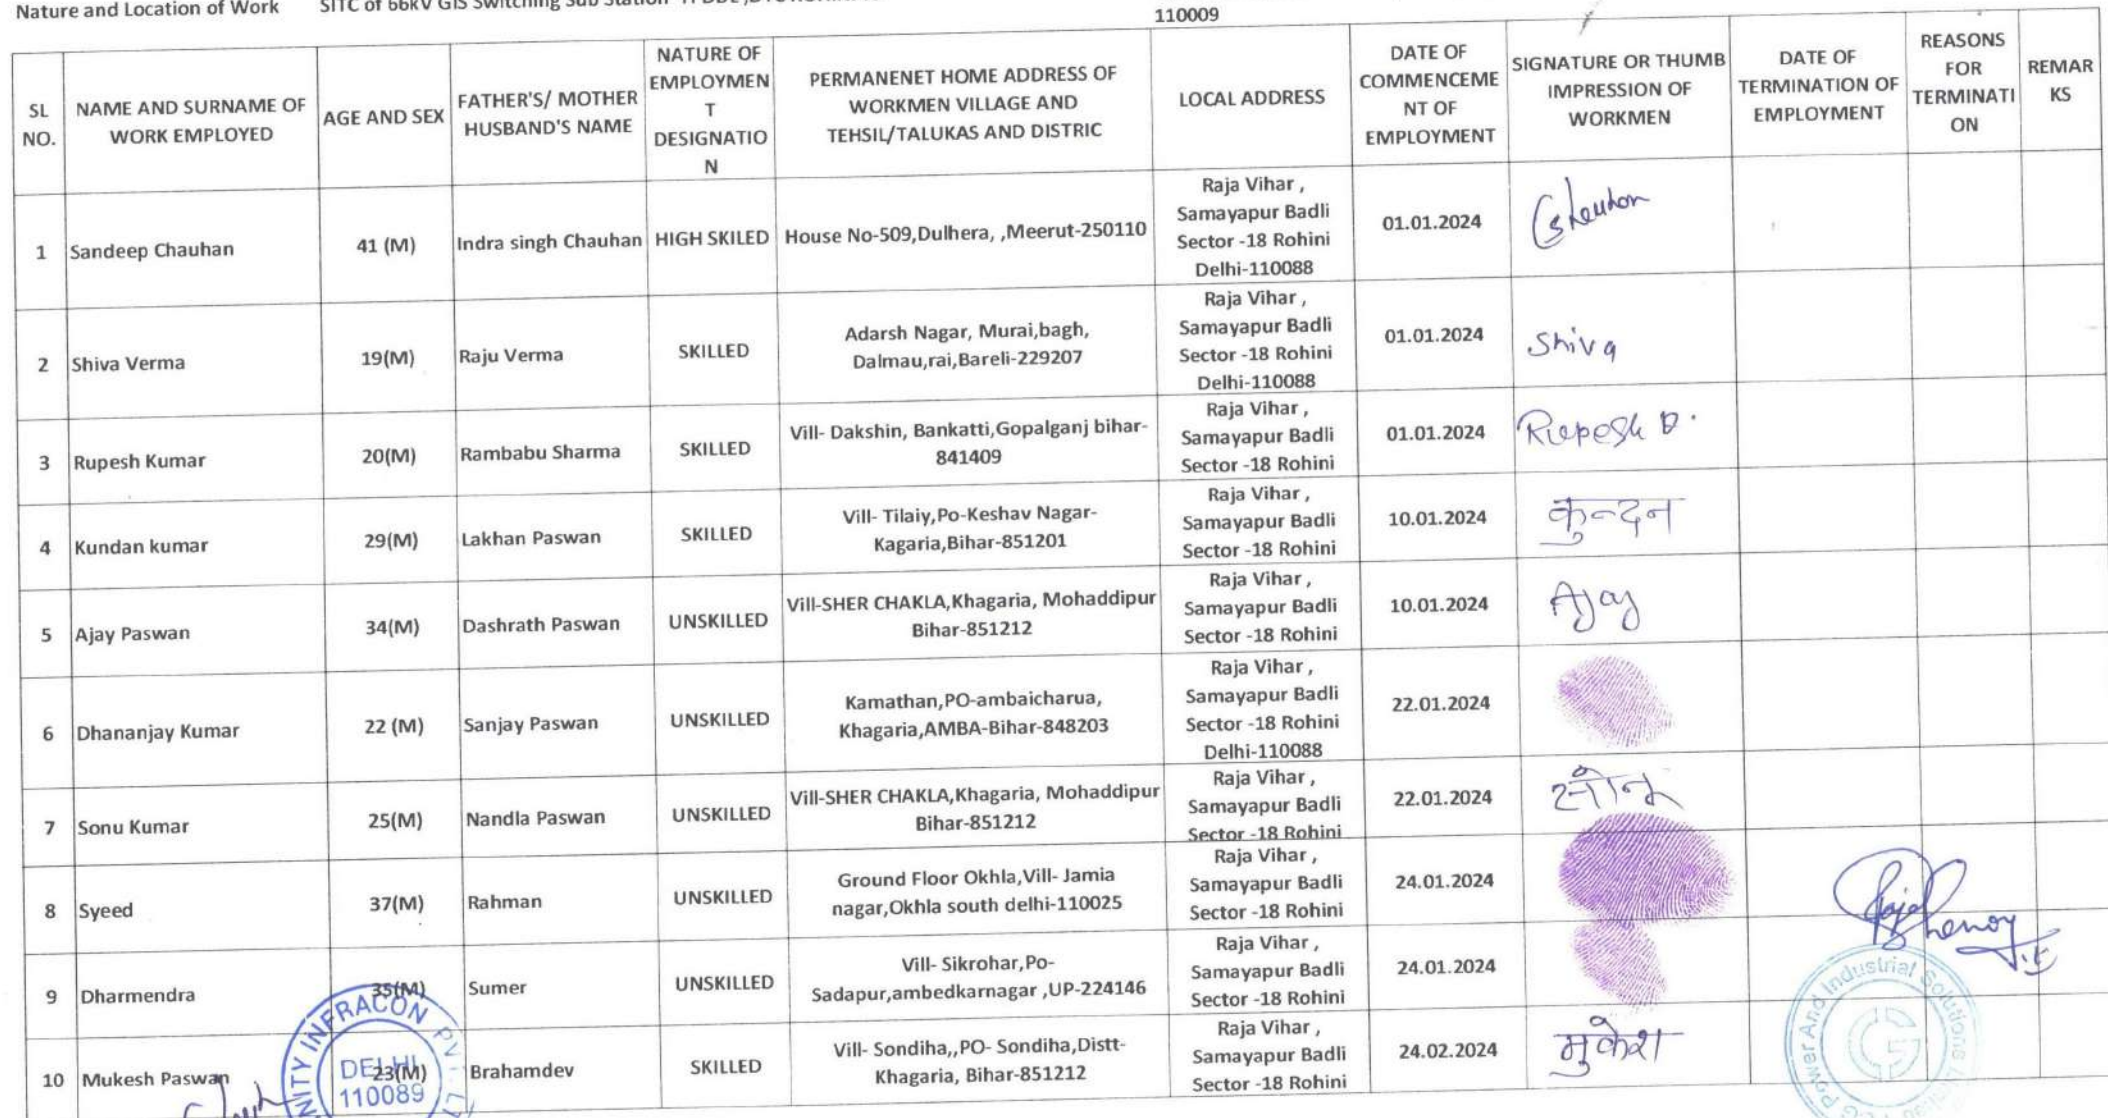 Nature and Location of Work SITC of 66kV GIS Switching Sub Station
110009
SL NO. | NAME AND SURNAME OF WORK EMPLOYED | AGE AND SEX | FATHER'S/ MOTHER HUSBAND'S NAME | NATURE OF EMPLOYMENT DESIGNATION | PERMANENET HOME ADDRESS OF WORKMEN VILLAGE AND TEHSIL/TALUKAS AND DISTRIC | LOCAL ADDRESS | DATE OF COMMENCEMENT OF EMPLOYMENT | SIGNATURE OR THUMB IMPRESSION OF WORKMEN | DATE OF TERMINATION OF EMPLOYMENT | REASONS FOR TERMINATION | REMARKS
1 | Sandeep Chauhan | 41 (M) | Indra singh Chauhan | HIGH SKILED | House No-509,Dulhera, ,Meerut-250110 | Raja Vihar , Samayapur Badli Sector -18 Rohini Delhi-110088 | 01.01.2024
2 | Shiva Verma | 19(M) | Raju Verma | SKILLED | Adarsh Nagar, Murai,bagh, Dalmau,rai,Bareli-229207 | Raja Vihar , Samayapur Badli Sector -18 Rohini Delhi-110088 | 01.01.2024 | Shiva
3 | Rupesh Kumar | 20(M) | Rambabu Sharma | SKILLED | Vill- Dakshin, Bankatti,Gopalganj bihar-841409 | Raja Vihar , Samayapur Badli Sector -18 Rohini | 01.01.2024 | Rupesh
4 | Kundan kumar | 29(M) | Lakhan Paswan | SKILLED | Vill- Tilaiy,Po-Keshav Nagar-Kagaria,Bihar-851201 | Raja Vihar , Samayapur Badli Sector -18 Rohini | 10.01.2024 | कुन्दन
5 | Ajay Paswan | 34(M) | Dashrath Paswan | UNSKILLED | Vill-SHER CHAKLA,Khagaria, Mohaddipur Bihar-851212 | Raja Vihar , Samayapur Badli Sector -18 Rohini | 10.01.2024 | Ajay
6 | Dhananjay Kumar | 22 (M) | Sanjay Paswan | UNSKILLED | Kamathan,PO-ambaicharua, Khagaria,AMBA-Bihar-848203 | Raja Vihar , Samayapur Badli Sector -18 Rohini Delhi-110088 | 22.01.2024
7 | Sonu Kumar | 25(M) | Nandla Paswan | UNSKILLED | Vill-SHER CHAKLA,Khagaria, Mohaddipur Bihar-851212 | Raja Vihar , Samayapur Badli Sector -18 Rohini | 22.01.2024
8 | Syeed | 37(M) | Rahman | UNSKILLED | Ground Floor Okhla,Vill- Jamia nagar,Okhla south delhi-110025 | Raja Vihar , Samayapur Badli Sector -18 Rohini | 24.01.2024
9 | Dharmendra | 35(M) | Sumer | UNSKILLED | Vill- Sikrohar,Po-Sadapur,ambedkarnagar ,UP-224146 | Raja Vihar , Samayapur Badli Sector -18 Rohini | 24.01.2024
10 | Mukesh Paswan | 23(M) | Brahamdev | SKILLED | Vill- Sondiha,,PO- Sondiha,Distt-Khagaria, Bihar-851212 | Raja Vihar , Samayapur Badli Sector -18 Rohini | 24.02.2024 | मुकेश
INFRACON PVT.
DELHI
110089
Power And Industrial Solutions